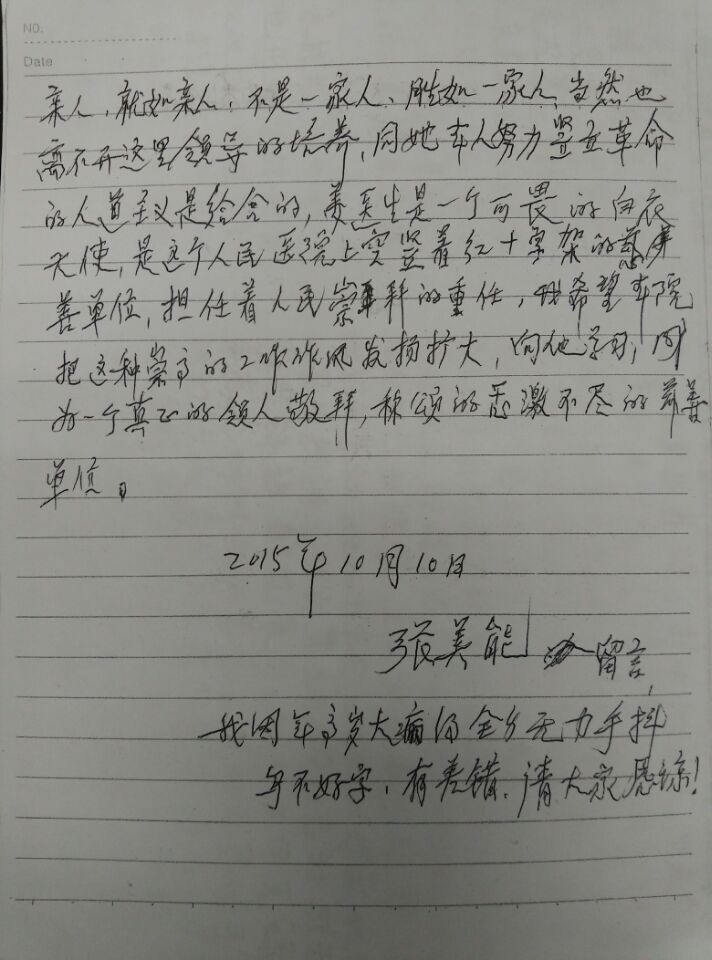 NO.
Date
亲人，就如亲人，不是一家人、胜如一家人，当然也
离不开这里领导的培养，同她本人努力竖立革命
的人道主义是给合的，姜医生是一个可畏的白衣
天使，是这个人民医院上空竖着红十字架的慈
善单位，担任着人民崇拜的重任，我希望本院
把这种崇高的工作作风发扬扩大，向他学习，同
为一个真正的领人敬拜，称颂的感激不尽的慈善
单位。
2015年10月10日
张美能 留言，
我因年高岁大病后全身无力手抖
写不好字，有差错，请大家愿谅！